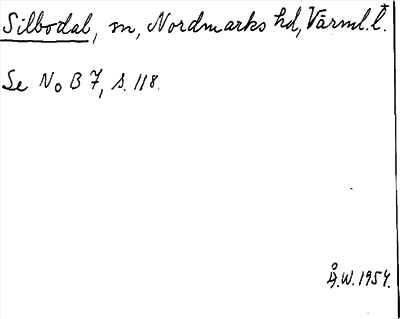 Silbodal, sn, Nordmarks hd, Värml. l.*
Se NoB 7, s. 118.
Å.W. 1954.